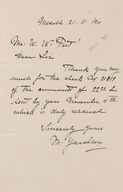 Mr. W. W. Peet
Dear Sir
Thank you very
much for the check No.
of the amount of 22.22
sent by your November 4th
which is duly received
Sincerely yours